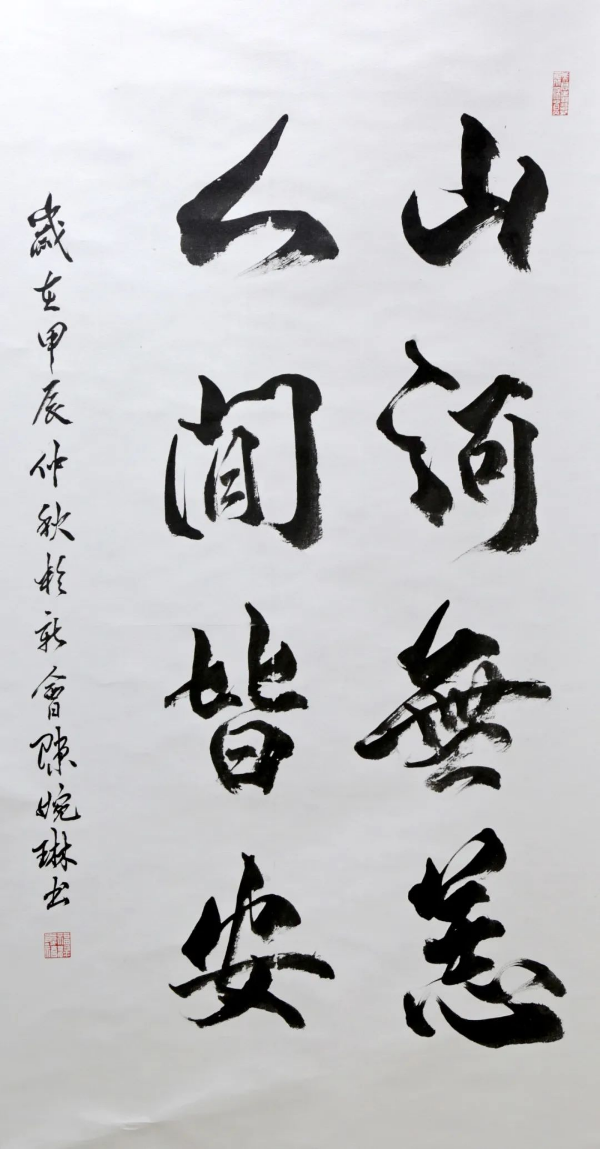 山河無恙
人間皆安
歲在甲辰仲秋於新會陳婉琳書